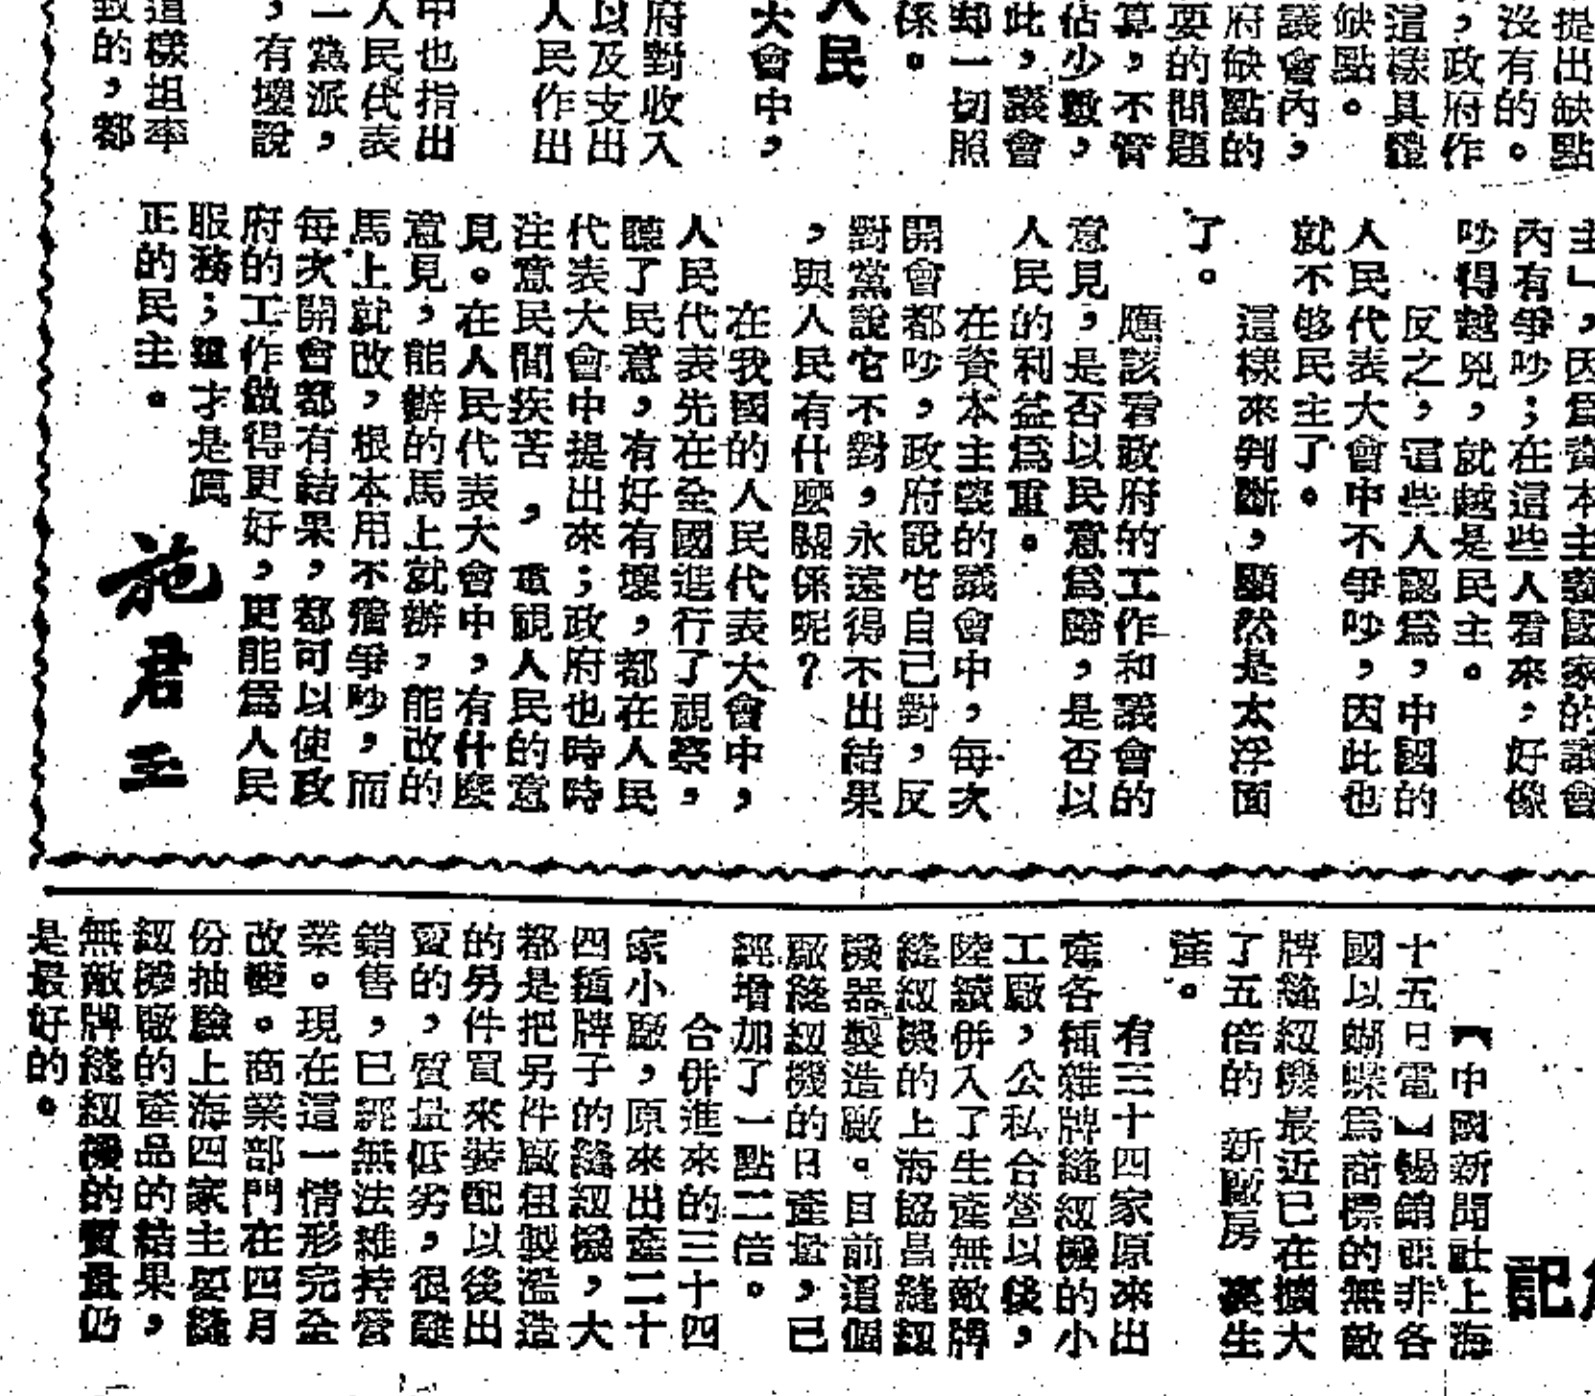 提出缺點
沒有的。
，政府作
這樣具體
缺點。
議會內，
府缺點的
要的問題
算，不管
佔少數，
此，議會
却一切照
係。
人民
大會中，
府對收入
以及支出
人民作出
中也指出
人民代表
一黨派，
，有壞說
這樣坦率
致的，都
主」，因爲資本主義國家的議會
內有爭吵；在這些人看來，好像
吵得越兇，就越是民主。
反之，這些人認爲，中國的
人民代表大會中不爭吵，因此也
就不够民主了。
這樣來判斷，顯然是太浮面
了。
應該看政府的工作和議會的
意見，是否以民意爲歸，是否以
人民的利益爲重。
在資本主義的議會中，每次
開會都吵，政府說它自己對，反
對黨說它不對，永遠得不出結果
，與人民有什麼關係呢？
在我國的人民代表大會中，
人民代表先在全國進行了視察，
聽了民意，有好有壞，都在人民
代表大會中提出來；政府也時時
注意民間疾苦，重視人民的意
見。在人民代表大會中，有什麼
意見，能辦的馬上就辦，能改的
馬上就改，根本用不着爭吵，而
每次開會都有結果，都可以使政
府的工作做得更好，更能爲人民
服務；這才是眞
正的民主。
施君玉
記
【中國新聞社上海
十五日電】暢銷亞非各
國以蝴蝶爲商標的無敵
牌縫紉機最近已在擴大
了五倍的新廠房裏生
產。
有三十四家原來出
產各種雜牌縫紉機的小
工廠，公私合營以後，
陸續併入了生產無敵牌
縫紉機的上海協昌縫紉
機器製造廠。目前這個
廠縫紉機的日產量，已
經增加了一點二倍。
合併進來的三十四
家小廠，原來出產二十
四種牌子的縫紉機，大
都是把另件廠粗製濫造
的另件買來裝配以後出
賣的，質量低劣，很難
銷售，已經無法維持營
業。現在這一情形完全
改變。商業部門在四月
份抽驗上海四家主要縫
紉機廠的產品的結果，
無敵牌縫紉機的質量仍
是最好的。